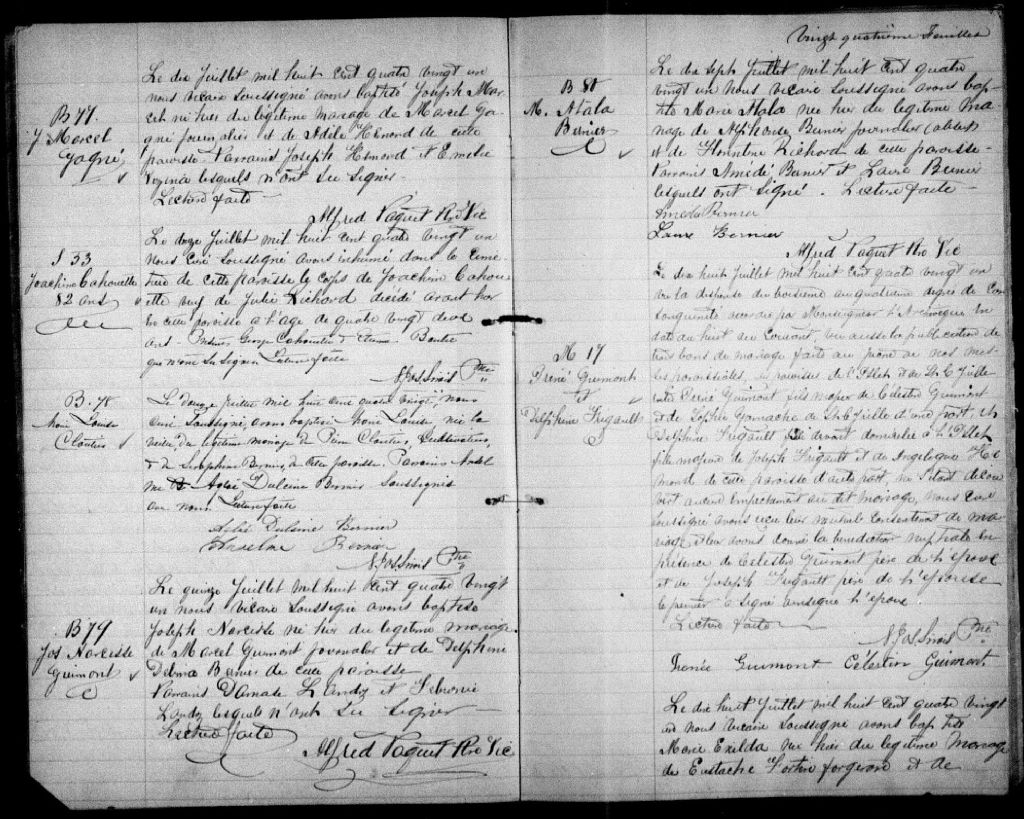 B 77.
J Marcel
Gagné
Le dix Juillet mil huit cent quatre vingt un
nous vicaire soussigné avons baptisé Joseph Mar
cel né hier du légitime mariage de Marcel Ga
gné journalier et de Adèle Hémond de cette
paroisse. Parrains Joseph Hémond et Emélie
lesquels n'ont su signer.
Lecture faite
Alfred Paquet Ptre Vic
S 33
Joachim Cahouette
82 ans
Le douze Juillet mil huit cent quatre vingt un
nous curé soussigné avons inhumé dans le cime
tière de cette paroisse le corps de Joachim Cahou
ette veuf de Julie Richard décédé avant hier
en cette paroisse a l'âge de quatre vingt deux
ans. Présents George Cahouette & Etienne
qui n'ont su signer Lecture faite
N. Jos Sirois Ptre
B. 78
Marie Louise
Cloutier
Le douze Juillet mil huit cent quatre vingt, nous
curé soussigné, avons baptisé Marie Louise née la
veille du légitime mariage de Cloutier, Cultivateur,
& de Séraphine Bernier, de cette paroisse. Parrains Ansel
me & Adée Dulcine Bernier soussignés
avec nous Lecture faite
Dulcine Bernier
Anselme Bernier
N. Jos Sirois Ptre
B 79
Jos Narcisse
Guimont
Le quinze Juillet mil huit cent quatre vingt
un nous vicaire soussigné avons baptisé
Joseph Narcisse né hier du légitime mariage
de Marcel Guimont journalier et de Delphine
Delvina Bernier de cette paroisse
Parrains Damase Landry et Fébronie
Landry lesquels n'ont su signer
Lecture faite
Alfred Paquet Ptre Vic
Vingt quatrième Feuillet
B 80
M. Atala
Bernier
Le dix sept Juillet mil huit cent quatre
vingt un nous vicaire soussigné avons bap
tisé Marie Atala née hier du légitime ma
riage de Alphonse Bernier journalier (absent)
et de Florentine Richard de cette paroisse
Parrains Amédé Bernier et Laure Bernier
lesquels ont signé. Lecture faite
Amédé Bernier
Laure Bernier
Alfred Paquet Ptre Vic
M 17
Iréné Guimont
&
Delphine Fugault
Le dix huit Juillet mil huit cent quatre vingt un
vu la dispense du troisième au quatrième degré de Con
sanguinité accordée par Monseigneur l'Archevêque en
date du huit du courant, vu aussi la publication de
trois bans de mariage faite au prône de nos mes
ses paroissiales, des paroisses de l'Islet & de St Cyrille
entre Iréné Guimont fils majeur de Célestin Guimont
& de Sophie Gamache de St Cyrille d'une part, et
Delphine Fugault, ci devant domiciliée à l'Islet
fille majeure de Joseph Fugault et de Angélique Hé
mond de cette paroisse d'autre part, ne s'étant décou
vert aucun empêchement au dit mariage, nous curé
soussigné avons reçu leur mutuel consentement de ma
riage & leur avons donné la bénédiction nuptiale en
présence de Célestin Guimont père de l'époux
et de Joseph Fugault père de l'épouse
le premier a signé ainsi que l'époux.
Lecture faite
N. Jos Sirois Ptre
Irenée Guimont Célestin Guimont
Le dix huit Juillet mil huit cent quatre vingt
un nous vicaire soussigné avons baptisé
Marie Exilda née hier du légitime mariage
de Eustache Fortin forgeron et de